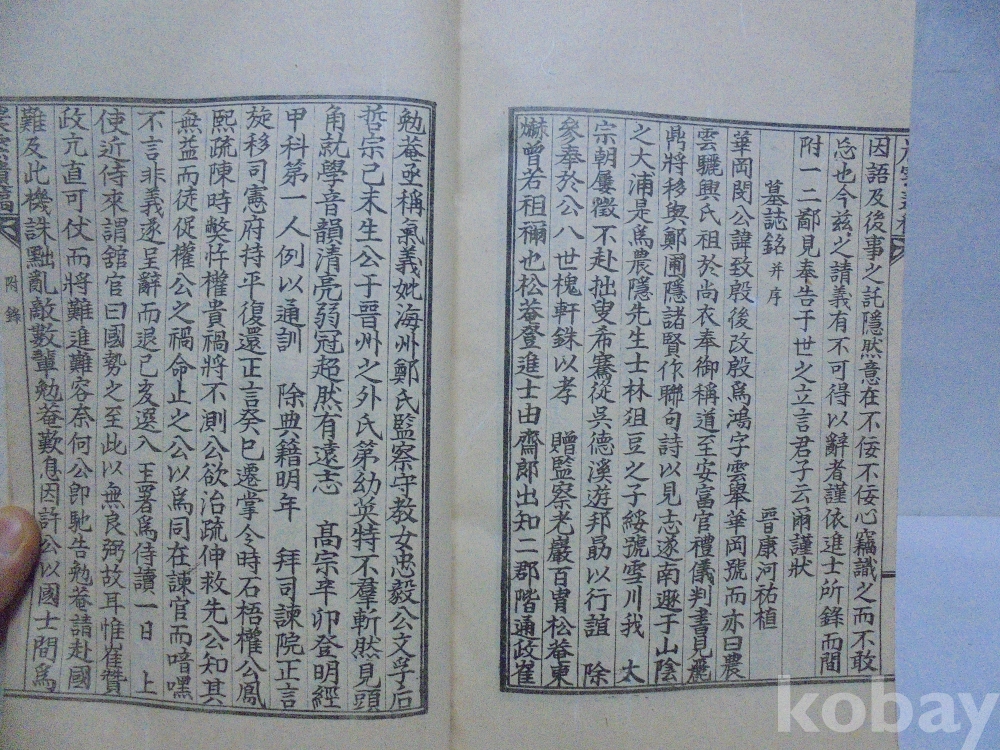 因語及後事之託隱然意在不佞不佞心竊識之而不敢
忘也今茲之請義有不可得以辭者謹依進士所錄而間
附一二鄙見奉告于世之立言君子云爾謹狀
晉康河祐植
墓誌銘 并序
華岡閔公諱致殷後改殷爲鴻字雲擧華岡號而亦曰農
雲驪興氏祖於尚衣奉御稱道至安富官禮儀判書見麗
鼎將移與鄭圃隱諸賢作聯句詩以見志遂南遯于山陰
之大浦是爲農隱先生士林俎豆之子綏號雪川我 太
宗朝屢徵不赴拙叟希騫從吳德溪遊邦勗以行誼 除
參奉於公八世槐軒銖以孝 贈監察老巖百胄松菴東
爀曾若祖禰也松菴登進士由齋郎出知二郡階通政崔
勉菴亟稱氣義妣海州鄭氏監察守教女忠毅公文孚后
哲宗己未生公于晉州之外氏第幼英特不羣嶄然見頭
角就學音韻清亮弱冠超然有遠志 高宗辛卯登明經
甲科第一人例以通訓 除典籍明年 拜司諫院正言
旋移司憲府持平復還正言癸巳遷掌令時石梧權公鳳
熙疏陳時弊忤權貴禍將不測公欲治疏伸救先公知其
無益而徒促權公之禍命止之公以爲同在諫官而喑嘿
不言非義遂呈辭而退已亥選入 王署爲侍讀一日 上
使近侍來謂舘官曰國勢之至此以無良弼故耳惟崔贊
政亢直可仗而將難進難容奈何公卽馳告勉菴請赴國
難及此機誅黜亂敵數輩勉菴歎息因許公以國士間爲
附錄
kobay